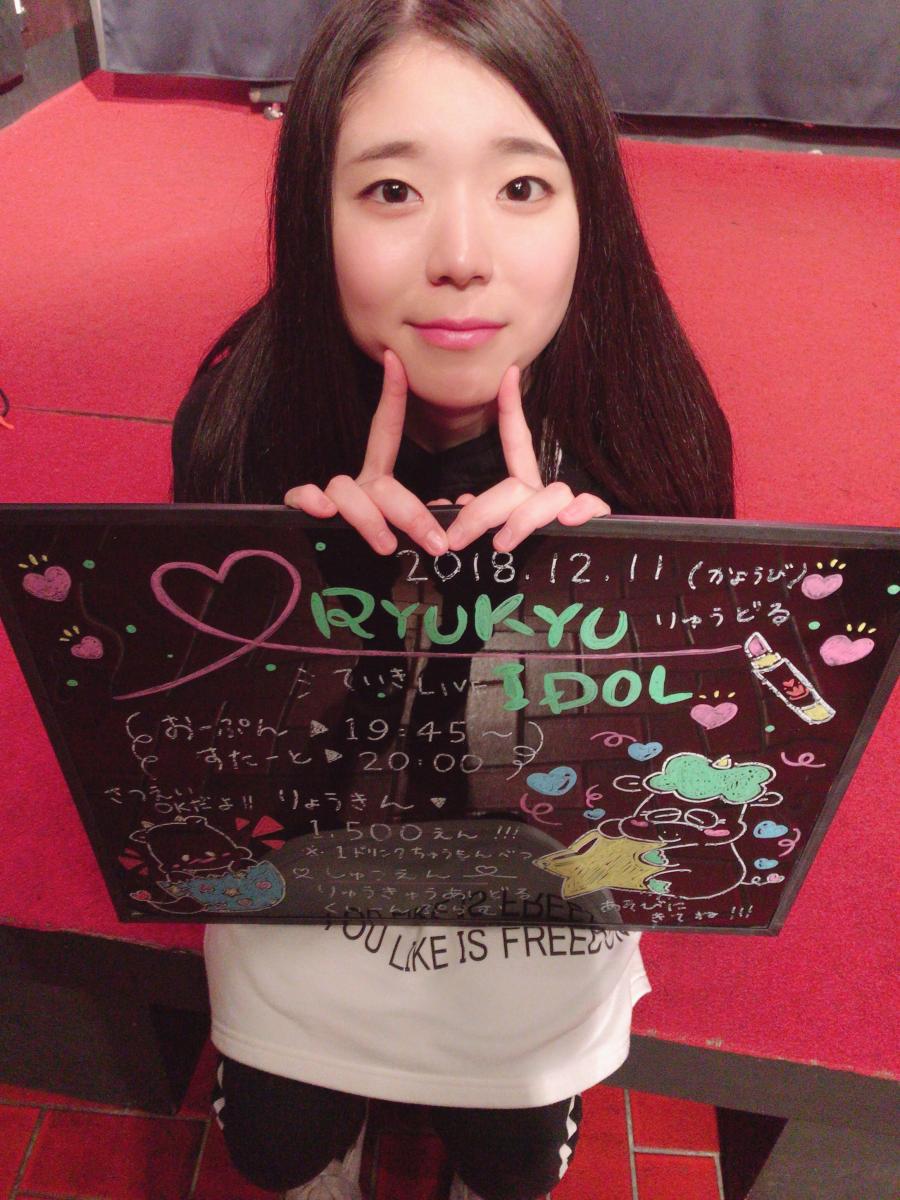 2018.12.11 (かようび)
RYUKYU りゅうどる
IDOL
ていきLIVE
おーぷん ▶ 19:45 〜
すたーと ▶ 20:00
さつえい
OKだよ!! りょうきん ♥
1.500えん !!!
※ 1ドリンクちゅうもんべつ
♡ しゅつえん ♡
りゅうきゅうあいどる
あそびに
きてね!!!
YOU LIKE IS FREEDOM